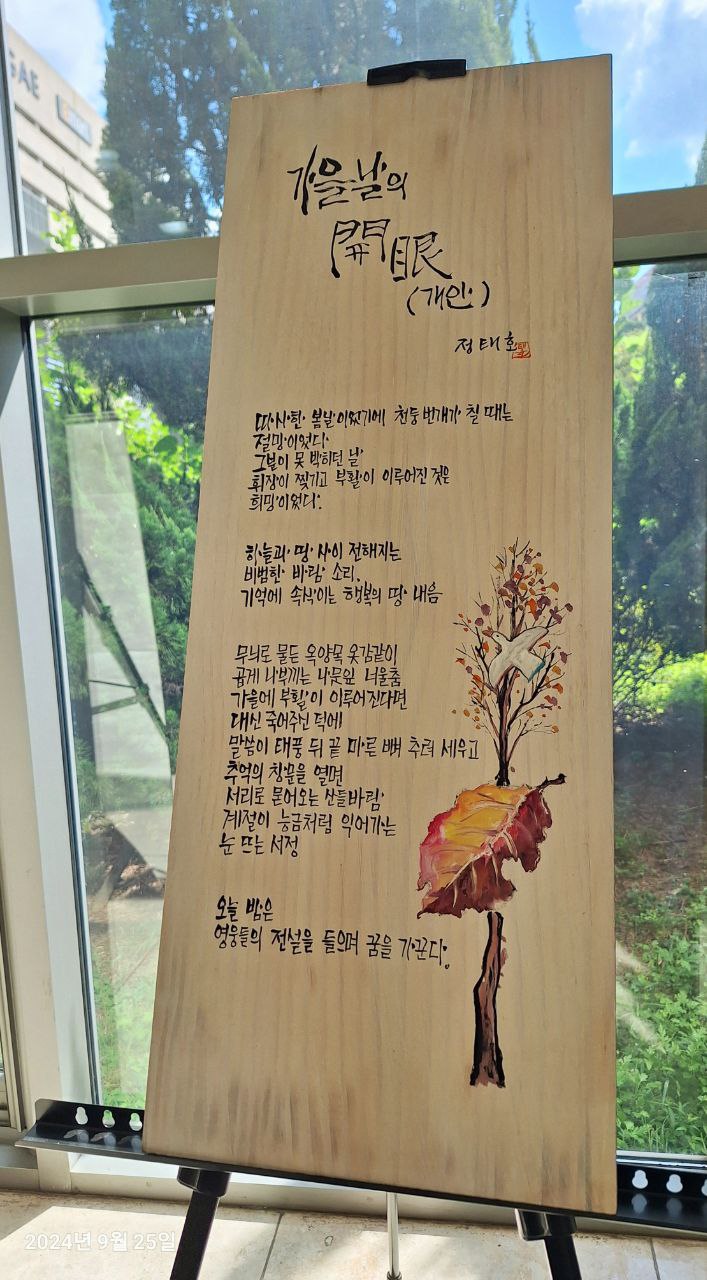 GAE
가을날의
開眼
(개안)
정태호
따사한 봄날이었기에 천둥번개가 칠 때는
절망이었다
그분이 못 박히던 날
휘장이 찢기고 부활이 이루어진 것은
희망이었다.
하늘과 땅 사이 전해지는
비범한 바람 소리.
기억에 속삭이는 행복의 땅 내음
무늬로 물든 옥양목 옷감같이
곱게 나부끼는 나뭇잎 너울춤
가을에 부활이 이루어진다면
대신 죽어주신 덕에
말씀이 태풍 뒤 끝 마른 뼈 추려 세우고
추억의 창문을 열면
서리로 묻어오는 산들바람
계절이 능금처럼 익어가는
눈 뜨는 서정
오늘 밤은
영웅들의 전설을 들으며 꿈을 가꾼다.
2024년 9월 25일